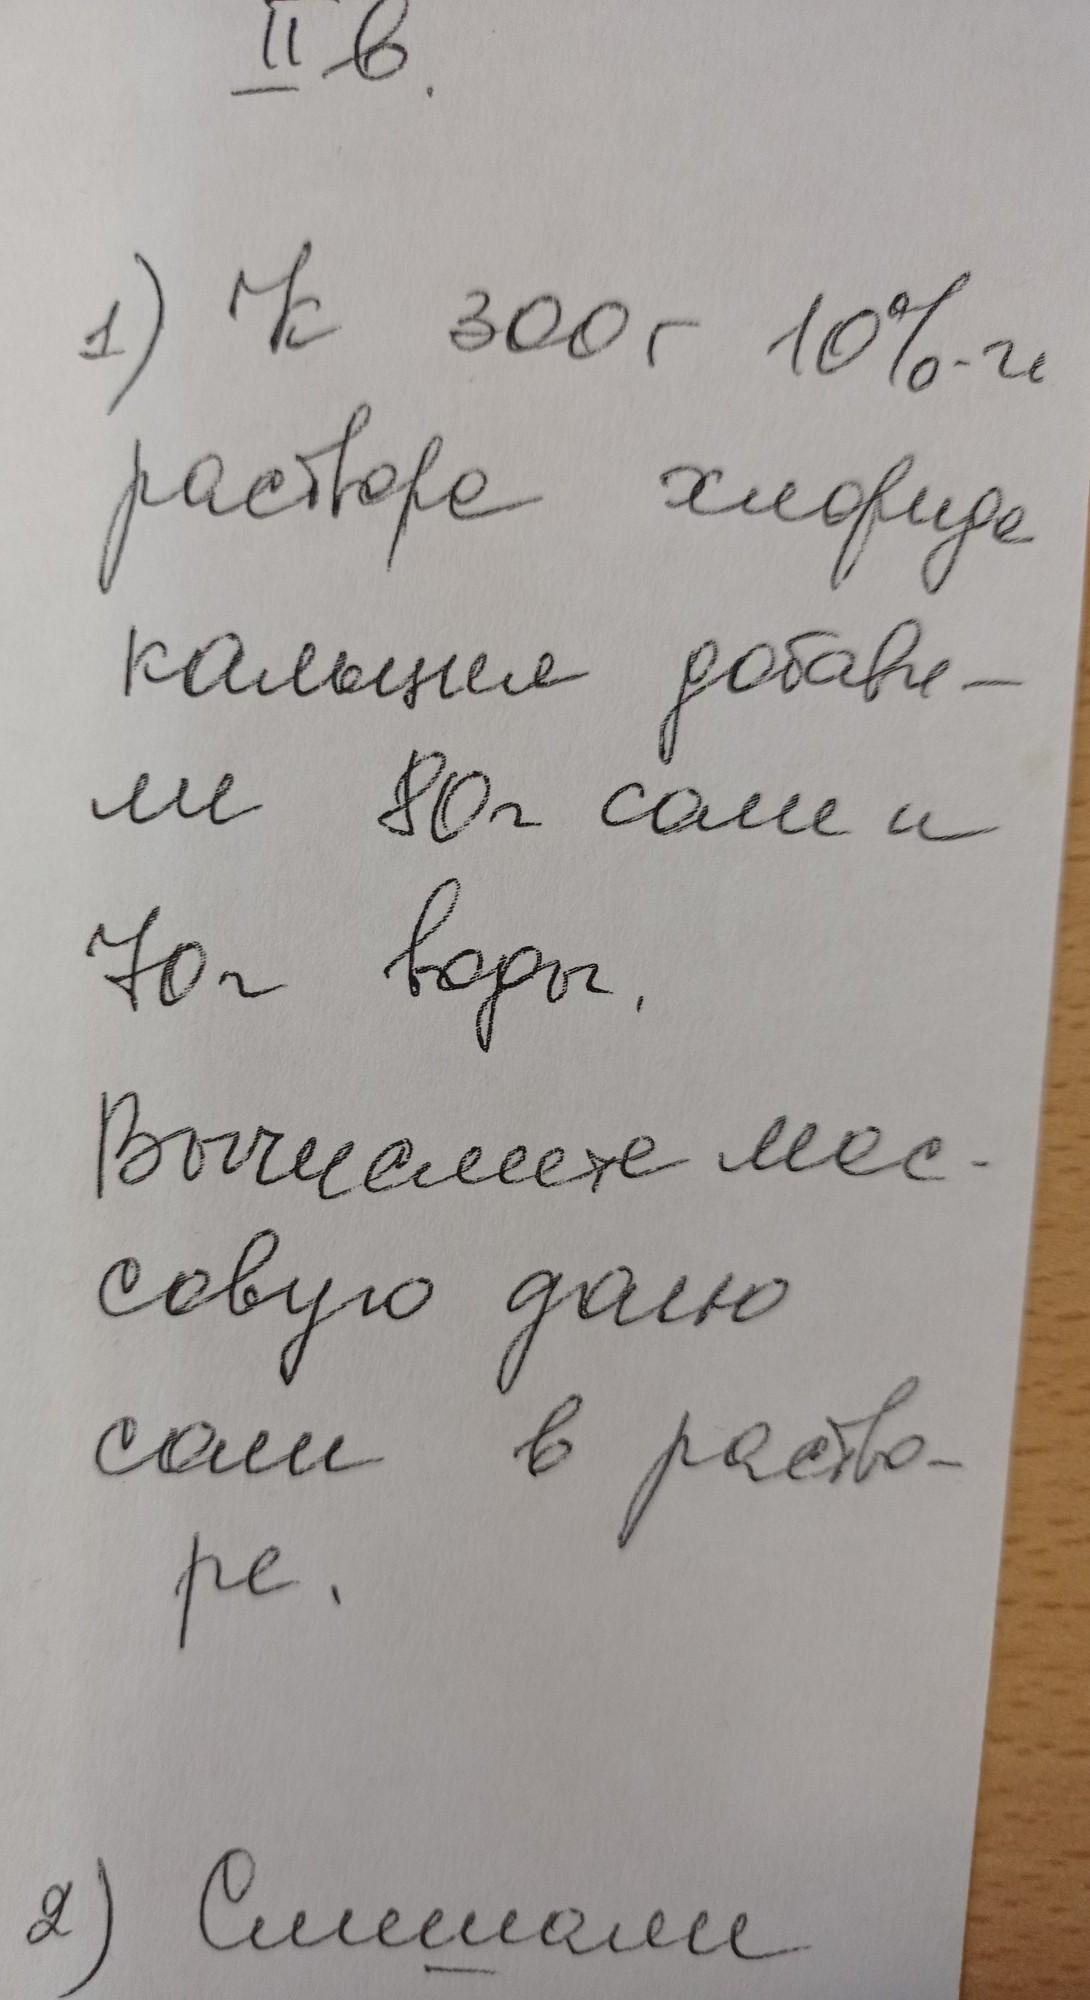 II в.
1) К 300г 10%-й
раствора хлорида
кальция добави-
ли 80г соли и
70г воды.
Вычислите мас-
совую долю
соли в раство-
ре.
2) Смешали